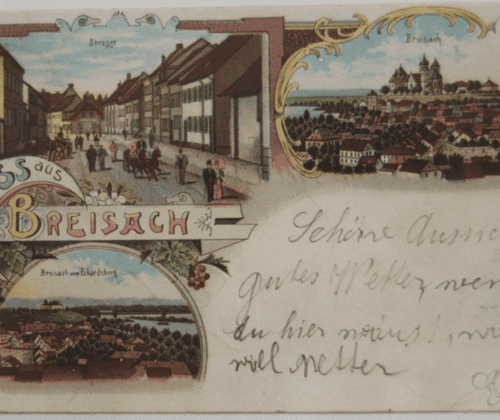 Strasse
Breisach
ss aus
BREISACH
Breisach vom Eckardsberg
Schöne Aussic
gutes Wetter, wen
du hier wärst!
will netter